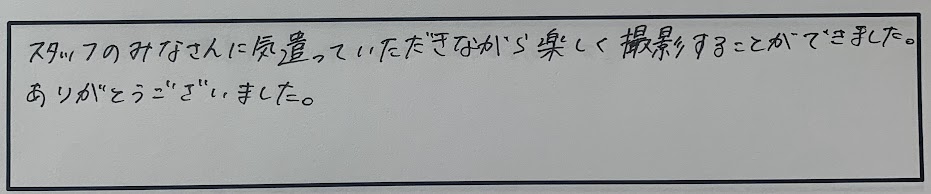 スタッフのみなさんに気遣っていただきながら楽しく撮影することができました。
ありがとうございました。